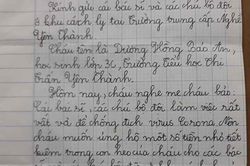 Kính gửi các bác sĩ và các chú bộ đội
ở khu cách ly tại Trường trung cấp Nghề
Yên Thành.
Cháu tên là Dương Hồng Cát An,
học sinh lớp 3C, Trường Tiểu học Thị
Trấn Yên Thành.
Hôm nay, cháu nghe mẹ cháu bảo:
Các bác sĩ, các chú bộ đội làm việc rất
vất vả để chống dịch virus Corona. Nên
cháu muốn ủng hộ một số tiền nhỏ tiết
kiệm trong con heo của cháu cho các bác